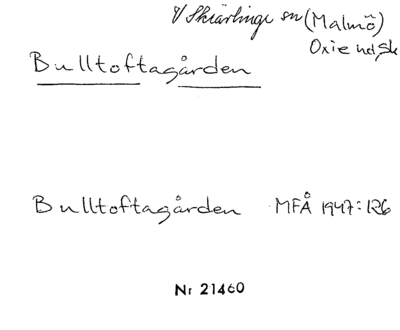 V Skrävlinge sn (Malmö)
Oxie hd, Sk
Bulltoftagården
Bulltoftagården MFÅ 1947:126
Nr 21460